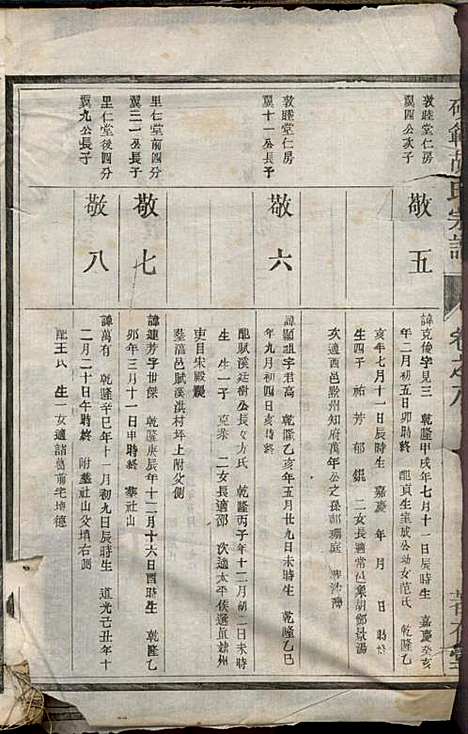 胡氏宗譜
卷之八
敦睦堂仁房
翼四公次子
敬五
諱克俊字見三 乾隆甲戌年七月十一日辰時生 嘉慶癸亥
年二月初五日卯時終 配貢生呈成公幼女范氏 乾隆乙
亥年七月十一日辰時生 嘉慶 年 月 日 時終
生四子 祐 芳 郁 錕 二女長適常邑集胡鄭景湯
次適西邑嚴州知府萬年公之孫邵瑚庭
敦睦堂仁房
翼十一公長子
敬六
諱顯祖字君高 乾隆乙亥年五月廿九日未時生 乾隆乙巳
年九月初四日亥時終
配賦溪廷樹公長女方氏 乾隆丙子年十二月初二日未時
生 生一子 克來 二女長適邵 次適太平侯選直隸州
吏目宋殿
墓溪邑賦溪淇村坪上附父側
里仁堂前四分
翼三一公長子
敬七
諱建芳字世傑 乾隆庚辰年十二月十六日酉時生 乾隆乙
卯年三月十一日申時終 葬社山
里仁堂後四分
翼九公長子
敬八
諱萬有 乾隆辛巳年十一月初九日辰時生 道光己丑年十
二月二十日午時終 附葬社山父墳右側
配王氏 生一女適諸葛前宅墳德